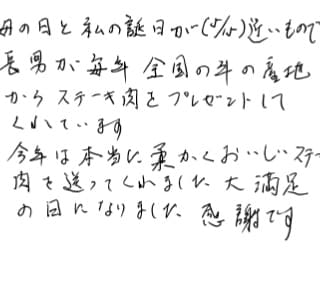 母の日と私の誕日が(5/15)近いもので
長男が毎年 全国の牛の産地
からステーキ肉をプレゼントして
くれています
今年は本当に柔かくおいしいステー
肉を送ってくれました 大満足
の日になりました 感謝です